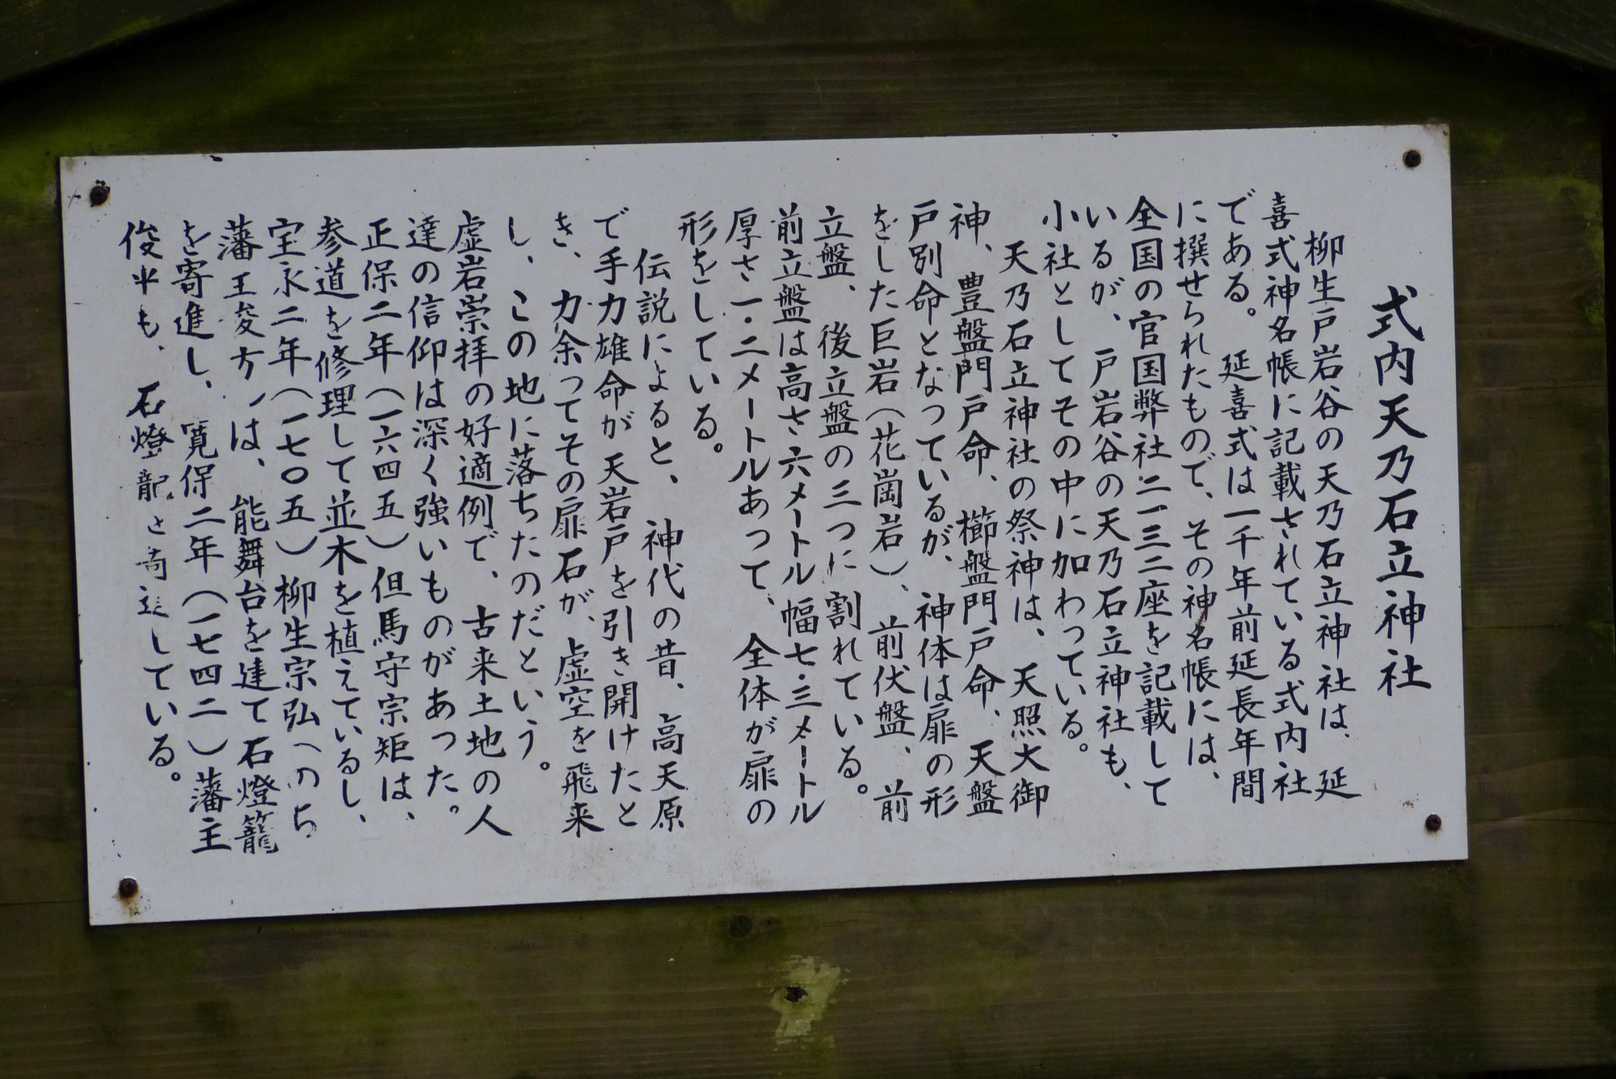 式内天乃石立神社
柳生戸岩谷の天乃石立神社は、延
喜式神名帳に記載されている式内社
である。延喜式は一千年前延長年間
に撰せられたもので、その神名帳には、
全国の官国弊社二一三二座を記載して
いるが、戸岩谷の天乃石立神社も、
小社としてその中に加わっている。
天乃石立神社の祭神は、天照大御
神、豊盤門戸命、櫛盤門戸命、天盤
戸別命となつているが、神体は扉の形
をした巨岩（花崗岩）、前伏盤、前
立盤、後立盤の三つに割れている。
前立盤は高さ六メートル幅七・三メートル
厚さ一・二メートルあって、全体が扉の
形をしている。
伝説によると、神代の昔、高天原
で手力雄命が天岩戸を引き開けたと
き、力余ってその扉石が、虚空を飛来
し、この地に落ちたのだという。
虚岩崇拝の好適例で、古来土地の人
達の信仰は深く強いものがあった。
正保二年（一六四五）但馬守宗矩は、
参道を修理して並木を植えているし、
宝永二年（一七〇五）柳生宗弘（のち
藩主俊方）は、能舞台を建て石燈籠
を寄進し、寛保二年（一七四二）藩主
俊平も、石燈籠を寄進している。